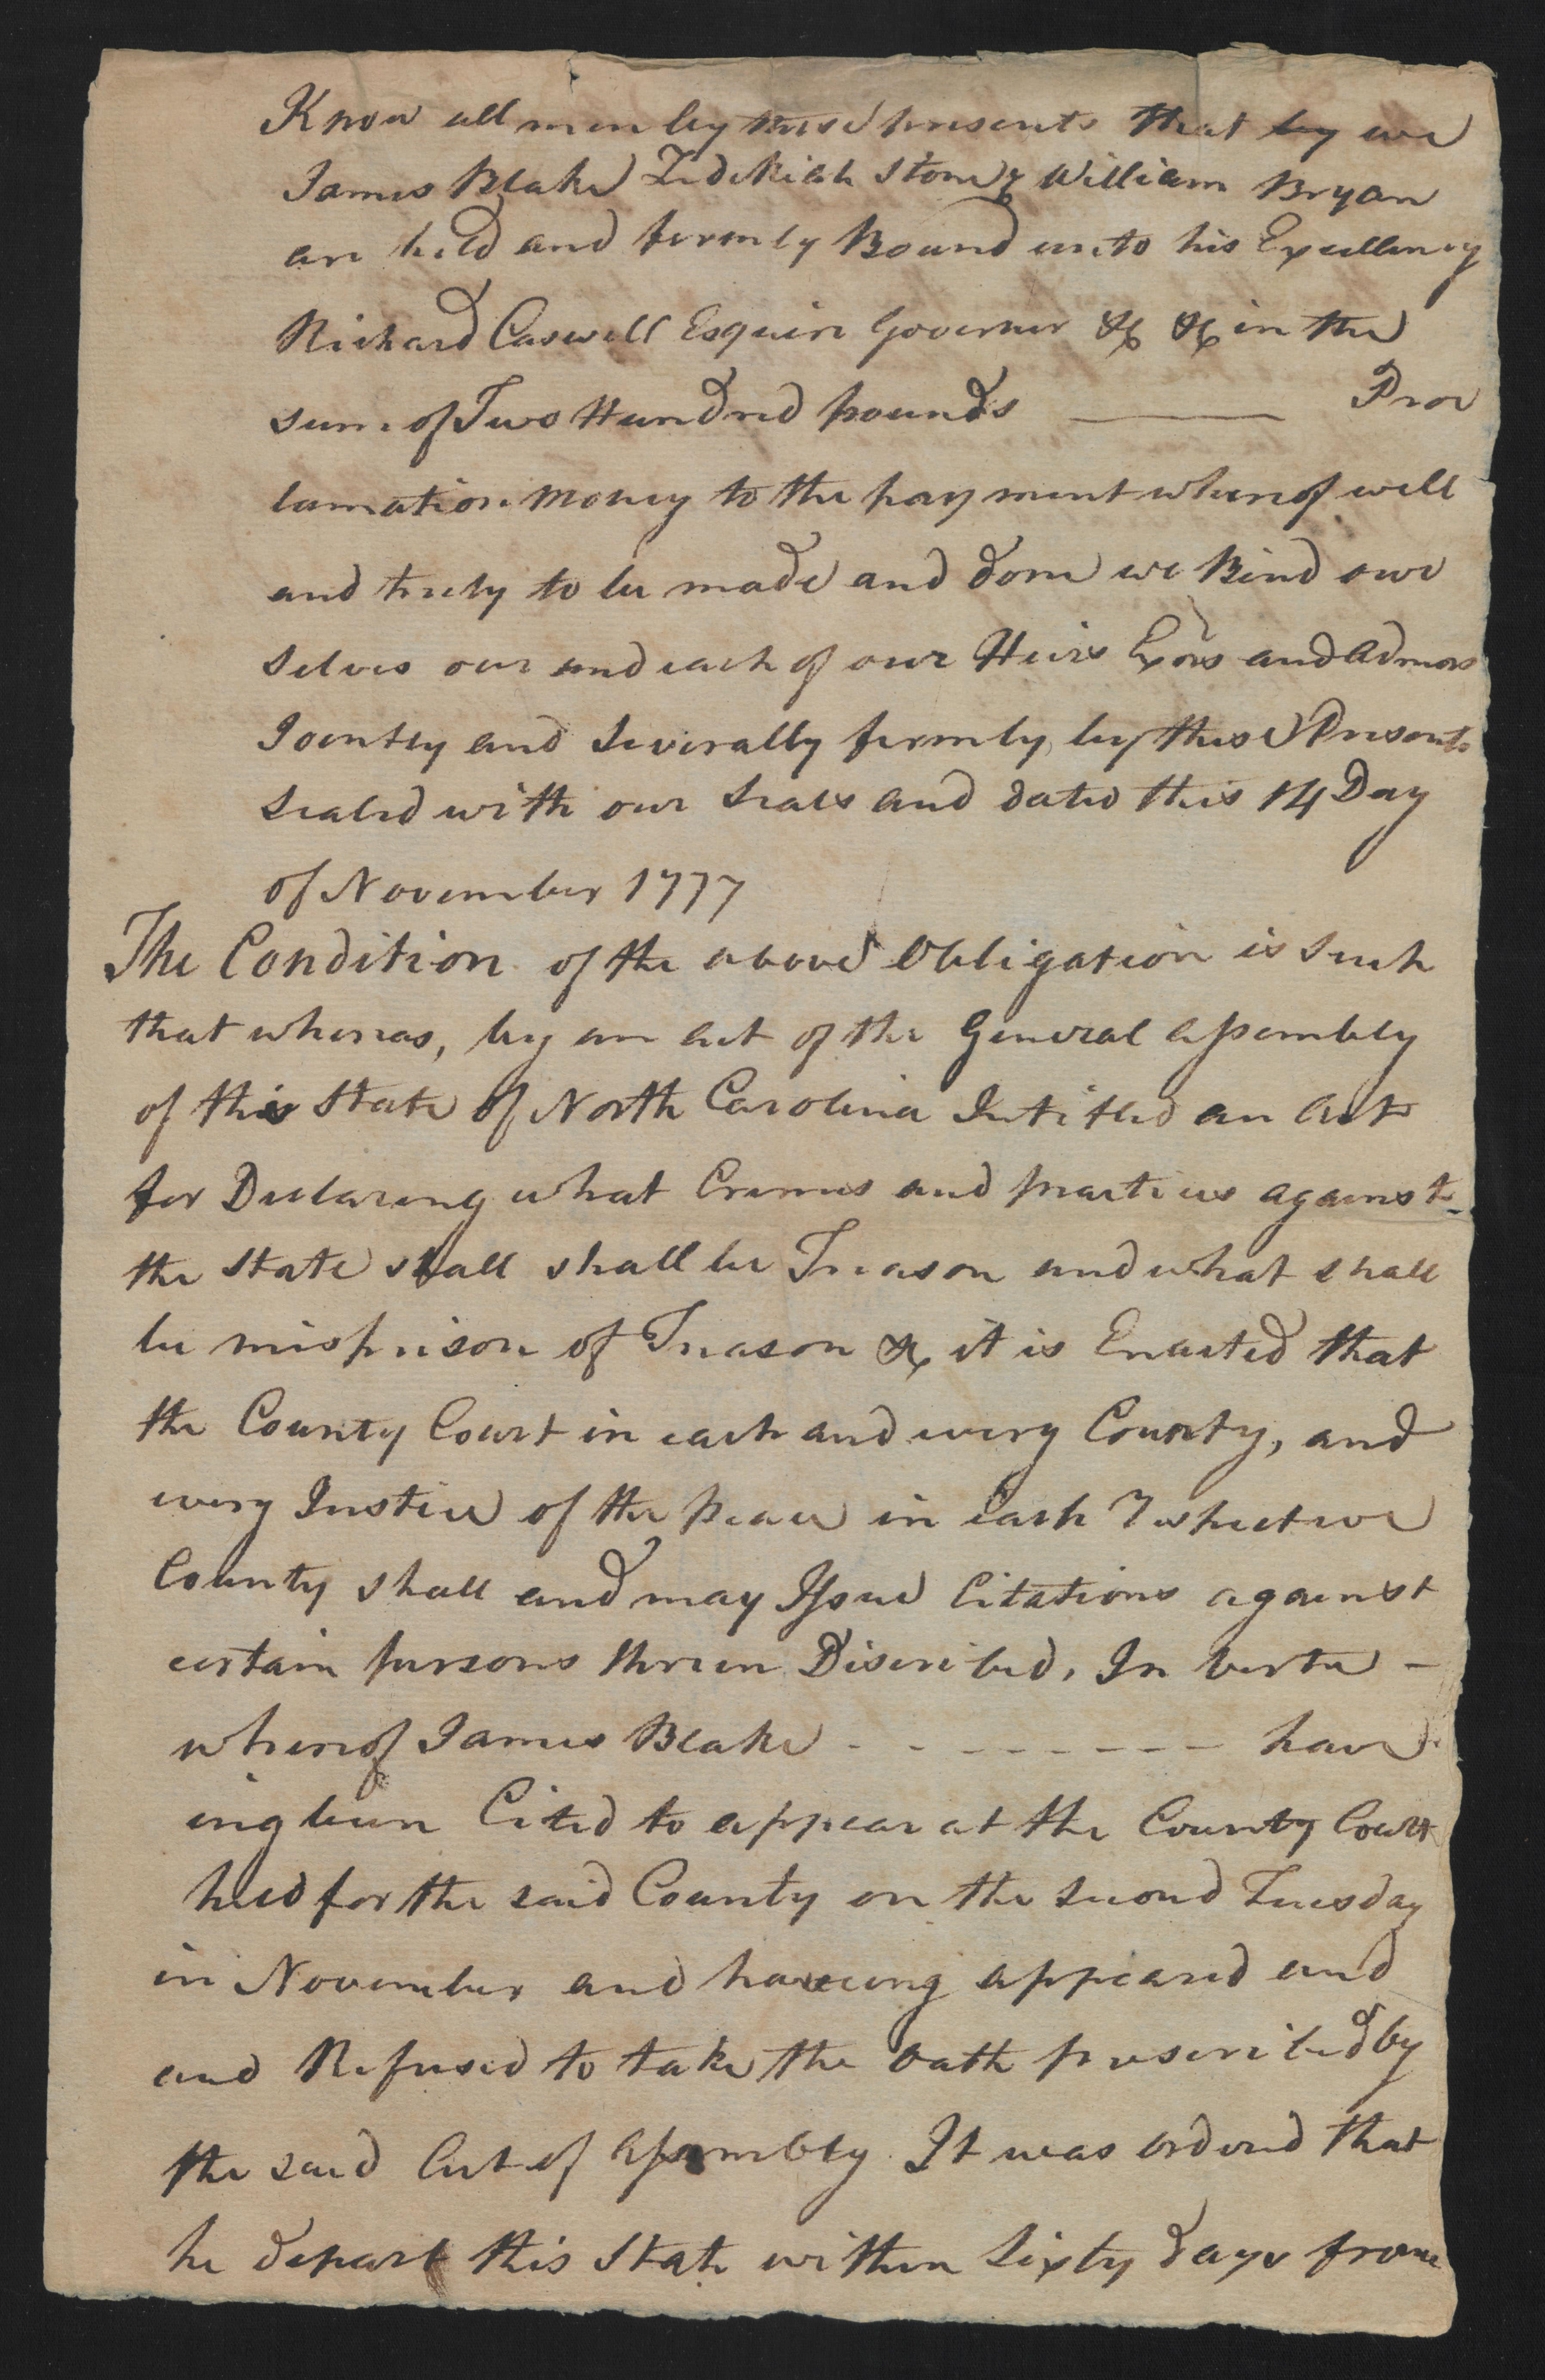 Know all men by these presents that by we
James Blake Zedekiah Stone & William Bryan
are held and firmly Bound unto his Excellency
Richard Caswell Esquire Governer &c &c in the
sum of Two Hundred pounds ——— Proc
lamation money to the payment whereof well
and truly to be made and done we Bind our
selves our and each of our Heirs Exors and Admors
Jointly and Severally firmly by these Presents
Sealed with our Seals and dated this 14 Day
of November 1777
The Condition of the above Obligation is Such
that whereas, by an act of the General Assembly
of this State of North Carolina Intitled an Act
for Declaring what Crimes and practices against
the State shall shall be Treason and what shall
be misprison of Treason &c it is Enacted that
the County Court in each and every County, and
every Justice of the peace in Each Respective
County shall and may Issue Citations against
certain persons therein Discribed, In vertue -
whereof James Blake - - - - - - - - - have
ing been Cited to appear at the County Court
held for the said County on the second Tuesday
in November and haveing appeared and
and Refused to take the oath prescribed by
the said Act of Assembly It was ordered that
he depart this State within Sixty days from